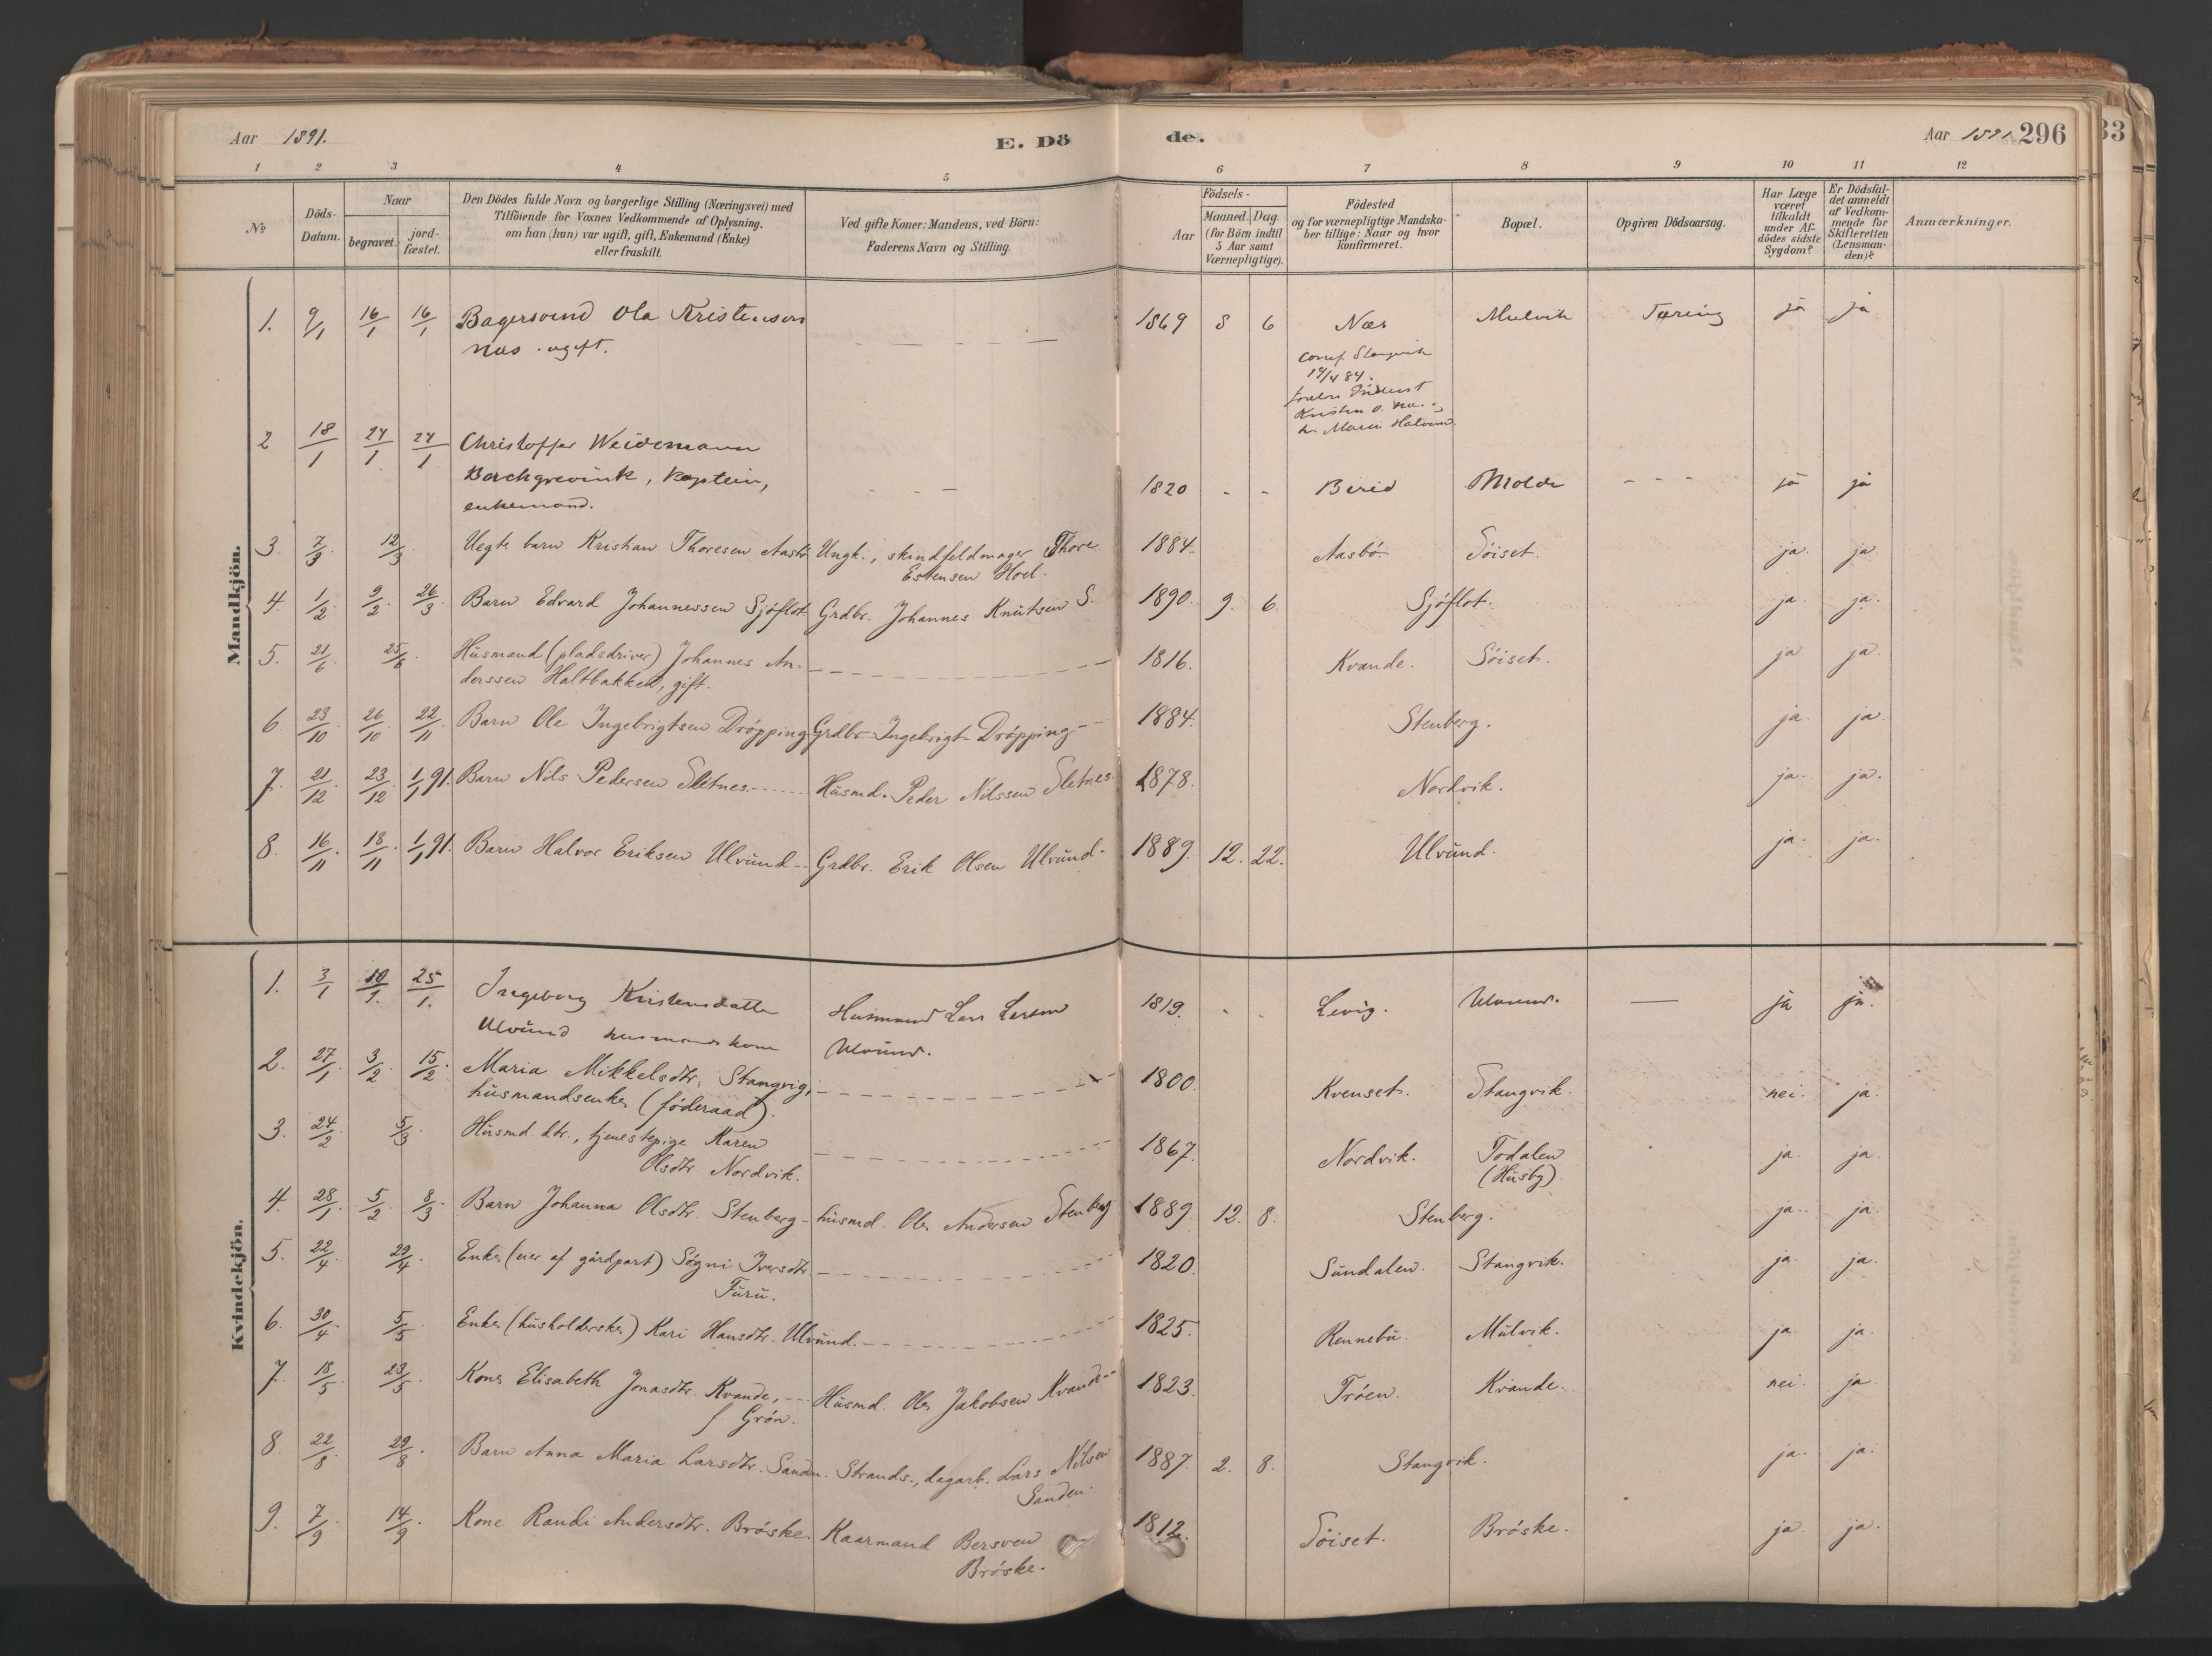 Aar 1891.
E. Dö
de.
Aar 1891.
296
33
1 2 3 4 5 6 7 8 9 10 11 12
№
Döds-Datum.
Naar
begravet.
jord-fæstet.
Den Dödes fulde Navn og borgerlige Stilling (Næringsvei) med
Tilföiende for Voxnes Vedkommende af Oplysning,
om han (hun) var ugift, gift, Enkemand (Enke)
eller fraskilt.
Ved gifte Koner: Mandens, ved Börn:
Faderens Navn og Stilling.
Födsels-
Aar
Maaned.
Dag.
(for Börn indtil
5 Aar samt
Værnepligtige).
Födested
og for værnepligtige Mandska-
ber tillige: Naar og hvor
konfirmeret.
Bopæl.
Opgiven Dödsaarsag.
Har Læge
været
tilkaldt
under Af-
dödes sidste
Sygdom?
Er Dödsfal-
det anmeldt
af Vedkom-
mende for
Skifteretten
(Lensman-
den)?
Anmærkninger.
Mandkjön.
1. 9/1 16/1 16/1 Bagersvend Ola Kristensen 1869 8 6 Næs Mulvik Tæring ja ja
Næs. ugift.
Conf. Stangvik
14/4 84.
2 18/1 24/1 24/1 Christoffer Weidemann
Borchgrevink, Kaptein, 1820 - - Molde - - - ja ja
enkemand.
3. 7/3 12/3 Uegte barn Kristian Thoresen Aasbö Ungk., skindfeldmager Thore 1884. Aasbö Söiset. ja. ja
Estensen Hoel.
4. 1/2 9/2 26/3 Barn Edvard Johannessen Sjöflot Grdbr. Johannes Knutsen S. 1890. 9. 6. Sjöflot. ja. ja.
5. 21/6 25/6 Husmand (pladsdriver) Johannes An- 1816. Kvande. Söiset. ja ja.
derssen Haltbakken, gift.
6. 23/10 26/10 22/11 Barn Ole Ingebrigtsen Dröpping Grdbr. Ingebrigt Dröpping 1884. Stenberg. ja. ja.
7. 21/12 23/12 1/1 91. Barn Nils Pedersen Sletnes. Husmd. Peder Nilssen Sletnes. 1878. Nordvik. ja. ja.
8. 16/11 18/11 1/1 91. Barn Halvor Eriksen Ulvund Grdbr. Erik Olsen Ulvund. 1889. 12. 22. Ulvund. ja. ja.
Kvindekjön.
1. 3/1 10/1. 25/1. Ingeborg Kristensdatter Husmand Lars Larsen 1819. - - Ulvund. — ja ja.
Ulvund husmandskone Ulvund.
2. 27/1 3/2 15/2 Maria Mikkelsdtr. Stangvig, 1800. Kvenset. Stangvik. nei. ja.
husmandsenke (föderaad).
3. 24/2 5/3 Husmd. dtr., tjenestepige Karen 1867. Nordvik. Todalen ja. ja.
Olsdtr. Nordvik. (Husby).
4. 28/1 5/2 8/3 Barn Johanna Olsdtr. Stenberg husmd. Ole Andersen Stenberg 1889. 12. 8. Stenberg. ja. ja.
5. 22/4 29/4 Enke (eier af gårdpart) Sögni Iversdtr. 1820. Sundalen. Stangvik. ja. ja.
Furu.
6. 30/4 5/5 Enke (husholderske) Kari Hansdtr. Ulvund. 1825. Rennebu. Mulvik. ja. ja.
7. 18/5 23/5 Kone Elisabeth Jonasdtr. Kvande, Husmd. Ole Jakobsen Kvande 1823. Tröen. Kvande. nei. ja
f. Grön.
8. 22/8 29/8 Barn Anna Maria Larsdtr. Sanden. Strands., dagarb. Lars Nilsen 1887. 2. 8. Stangvik. ja. ja.
Sanden.
9. 7/9 14/9 Kone Randi Andersdtr. Bröske. Kaarmand Bersven 1812. Söiset. Bröske. ja. ja.
Bröske.